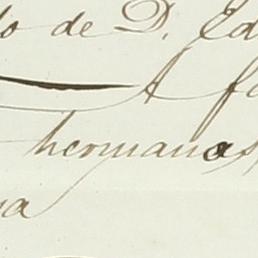 do de D. Ed
A fa
hermanas,
na